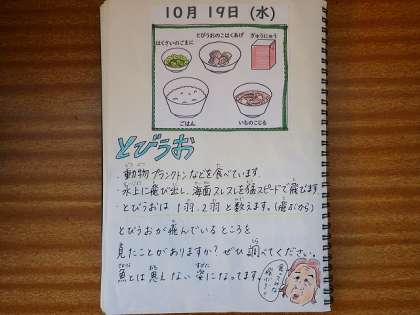 10月 19日 (水)
はくさいのごまに
とびうおのこはくあげ
ぎゅうにゅう
ごはん
いものこじる
とびうお
・動物プランクトンなどを食べています。
・水上に飛び出し、海面スレスレを猛スピードで飛びます
・とびうおは1羽、2羽と数えます。(飛ぶから)
とびうおが飛んでいるところを
見たことがありますか？ぜひ調べてください。
魚とは思えない姿になってます。